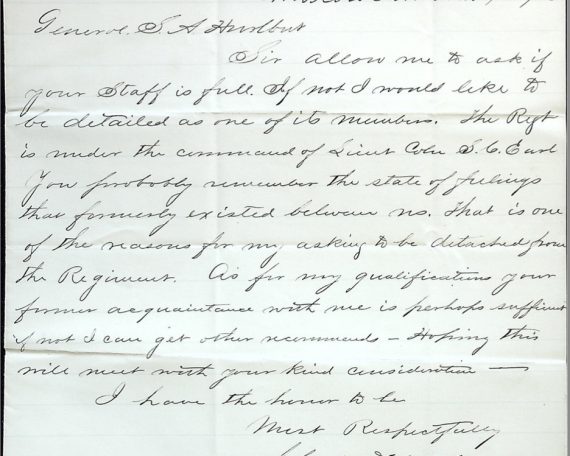 General. S. A Hurlbut
Sir allow me to ask if
your Staff is full. If not I would like to
be detailed as one of its members. The Regt
is under the command of Lieut Coln S. C. Earl
You probably remember the state of feelings
that formerly existed between us. That is one
of the reasons for my asking to be detached from
the Regiment. As for my qualifications your
former acquaintance with me is perhaps sufficient
if not I can get other recommends – Hoping this
will meet with your kind consideration —
I have the honor to be
Most Respectfully